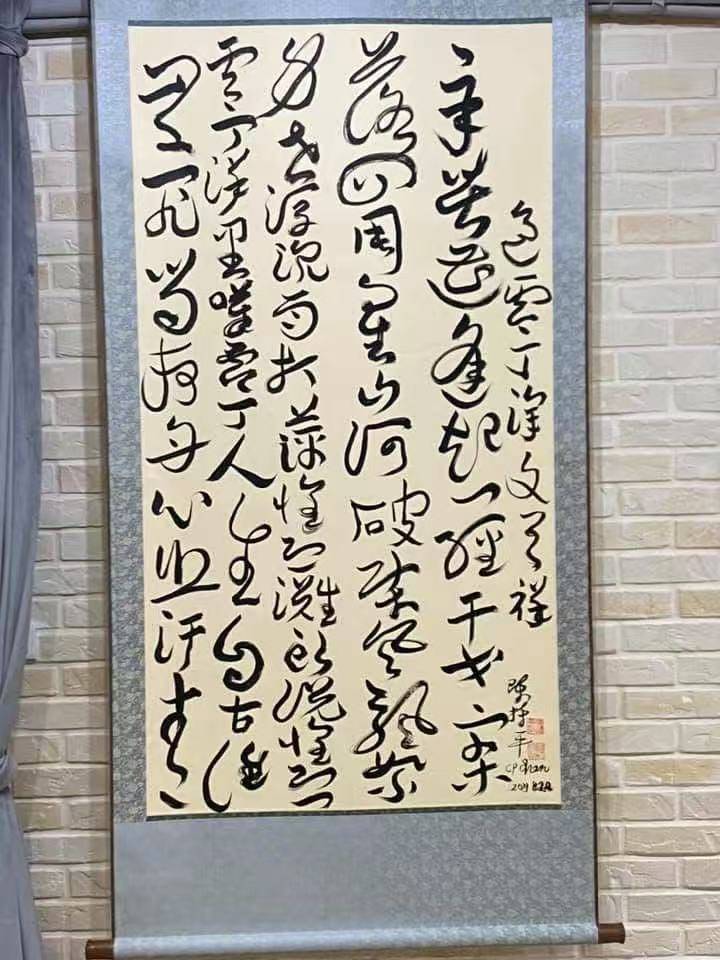 過零丁洋 文天祥
辛苦遭逢起一經干戈寥
落四周星山河破碎風飄絮
身世浮沉雨打萍惶恐灘頭說惶恐
零丁洋里嘆零丁人生自古誰
無死留取丹心照汗青
陳 平
CP Chan
2019